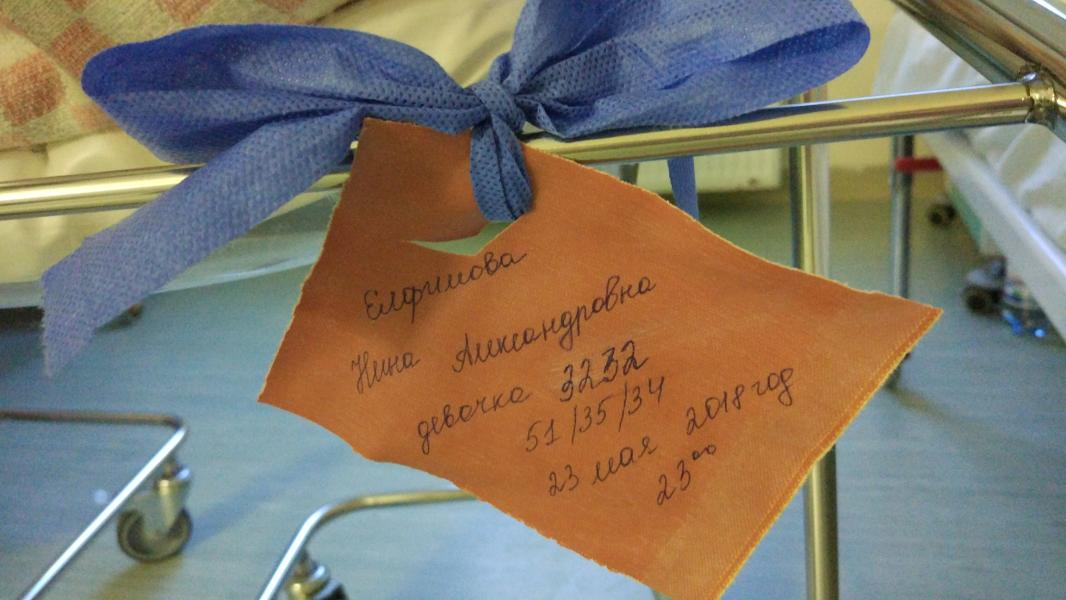 Елфимова
Нина Александровна
девочка 3232
51/35/34
23 мая 2018 год
23⁰⁰